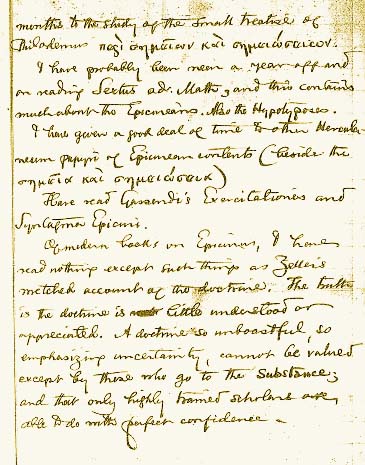 months to the study of the small treatise of
Philodemus περὶ σημείων καὶ σημειώσεων.
I have probably been near a year off and
on reading Sextus adv. Math, and this contains
much about the Epicureans. Also the Hypotyposes.
I have given a good deal of time to other Hercula-
neum papyri of Epicurean contents (beside the
σημεῖα καὶ σημειώσεια)
Have read Gassendi's Exercitationes and
Syntagma Epicuri.
Of modern books on Epicurus, I have
read nothing except such things as Zeller's
wretched account of the doctrine. The truth
is the doctrine is little understood or
appreciated. A doctrine so unboastful, so
emphasizing uncertainty, cannot be valued
except by those who go to the substance;
and that only highly trained scholars are
able to do with perfect confidence.